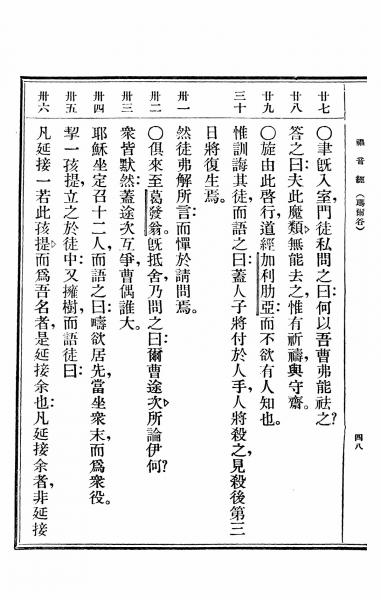 福音經 (瑪爾谷)
四八
廿七 〇聿旣入室,門徒私問之曰:何以吾曹弗能祛之?
廿八 答之曰:夫此魔類,無能去之,惟有祈禱與守齋。
廿九 〇旋由此啓行,道經加利肋亞,而不欲有人知也。
三十 惟訓誨其徒,而語之曰:蓋人子將付於人手,人將殺之,見殺後第三
日將復生焉。
卅一 然徒弗解所言,而憚於請問焉。
卅二 〇俱來至葛發翁。旣抵舍,乃問之曰:爾曹途次所論伊何?
卅三 衆皆默然:蓋途次互爭曹偶誰大。
卅四 耶穌坐定,召十二人,而語之曰:疇欲居先,當坐衆末,而爲衆役。
卅五 挈一孩提,立之於徒中,又擁
而語徒曰:
卅六 凡延接一若此孩提,而爲吾名者,是延接余也。凡延接余者,非延接